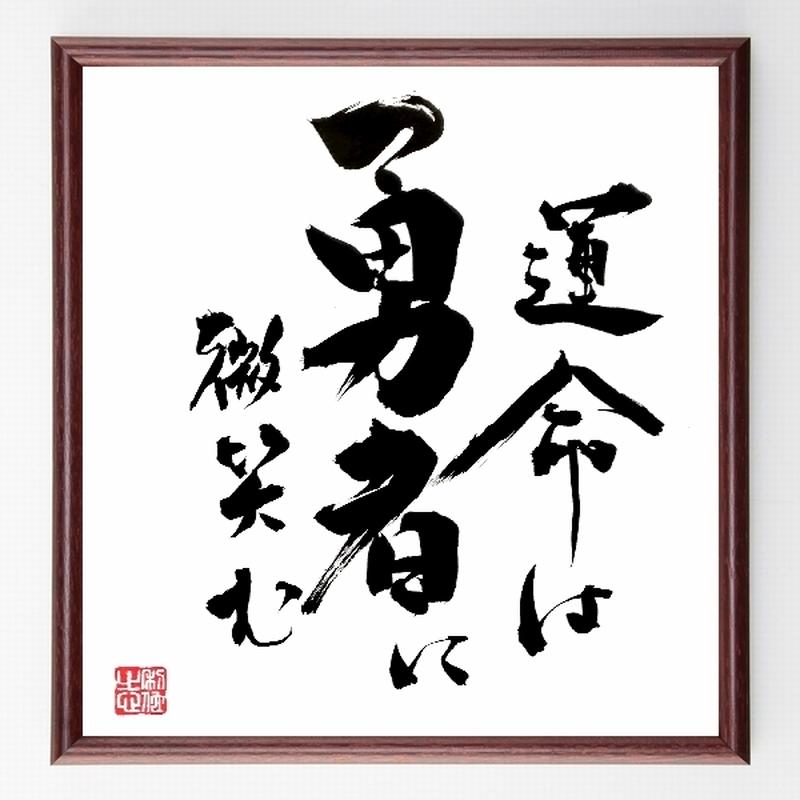 運命は
勇者に
微笑む